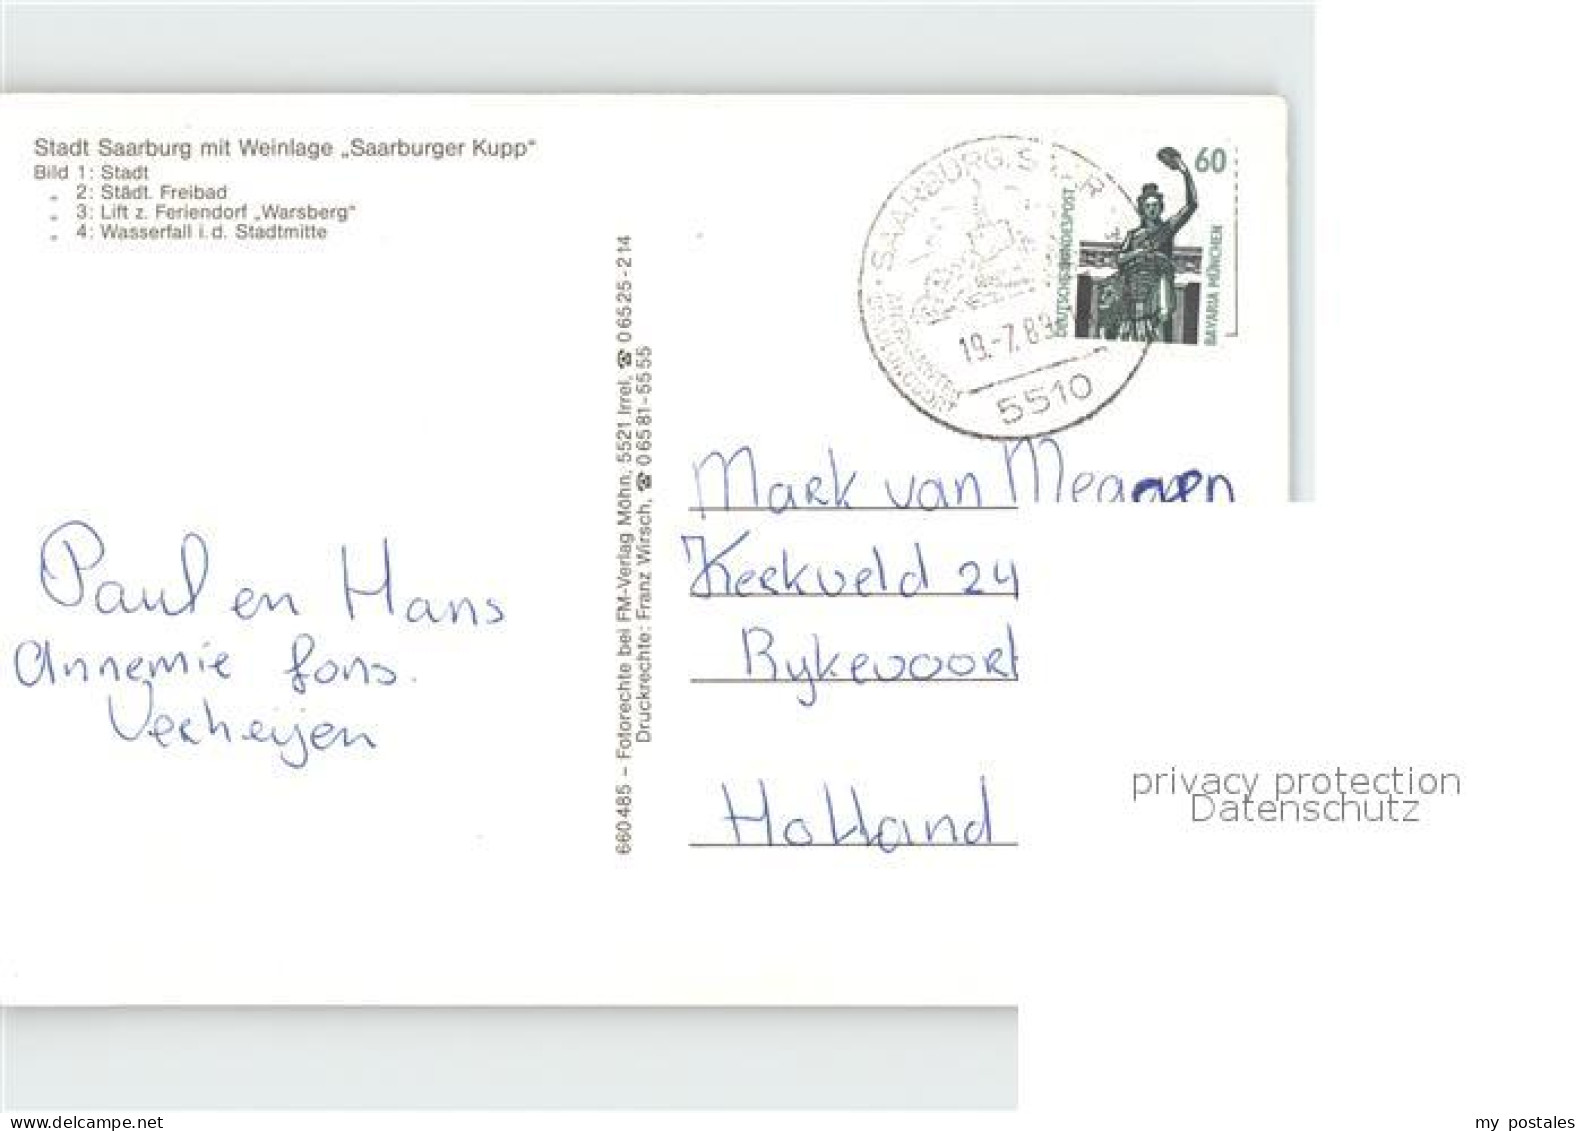 Stadt Saarburg mit Weinlage „Saarburger Kupp"
Bild 1: Stadt
„ 2: Städt. Freibad
„ 3: Lift z. Feriendorf „Warsberg"
„ 4: Wasserfall i. d. Stadtmitte
Paul en Hans
Annemie fons.
Verheijen
660485 – Fotorechte bei FM-Verlag Möhn, 5521 Irrel, ☎ 06525-214
Druckrechte: Franz Wirsch, ☎ 06581-5555
SAARBURG, SAAR
ERHOLUNGSORT
19.-7.89
5510
60
DEUTSCHE BUNDESPOST
BAVARIA MÜNCHEN
Mark van
Kerkveld 24
Rykevoort
Holland
privacy protection
Datenschutz
delcampe.net
my postales